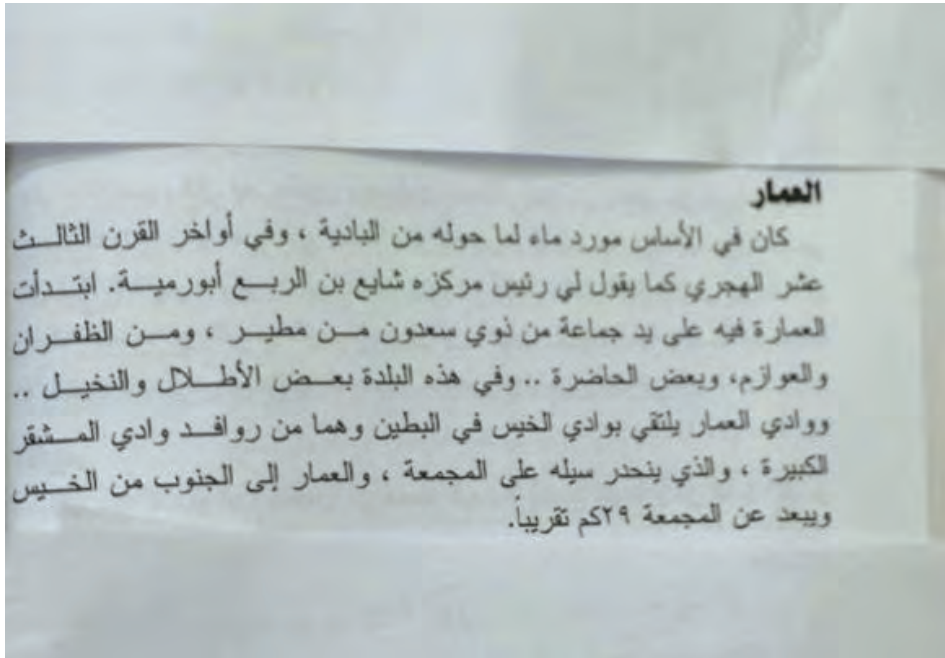 العمار
كان في الأساس مورد ماء لما حوله من البادية ، وفي أواخر القرن الثالث
عشر الهجري كما يقول لي رئيس مركزه شايع بن الربع أبورمية. ابتدأت
العمارة فيه على يد جماعة من ذوي سعدون من مطير ، ومن الظفران
والعوازم، وبعض الحاضرة .. وفي هذه البلدة بعض الأطلال والنخيل ..
ووادي العمار يلتقي بوادي الخيس في البطين وهما من روافد وادي المشقر
الكبيرة ، والذي ينحدر سيله على المجمعة ، والعمار إلى الجنوب من الخيس
ويبعد عن المجمعة ٢٩كم تقريباً.